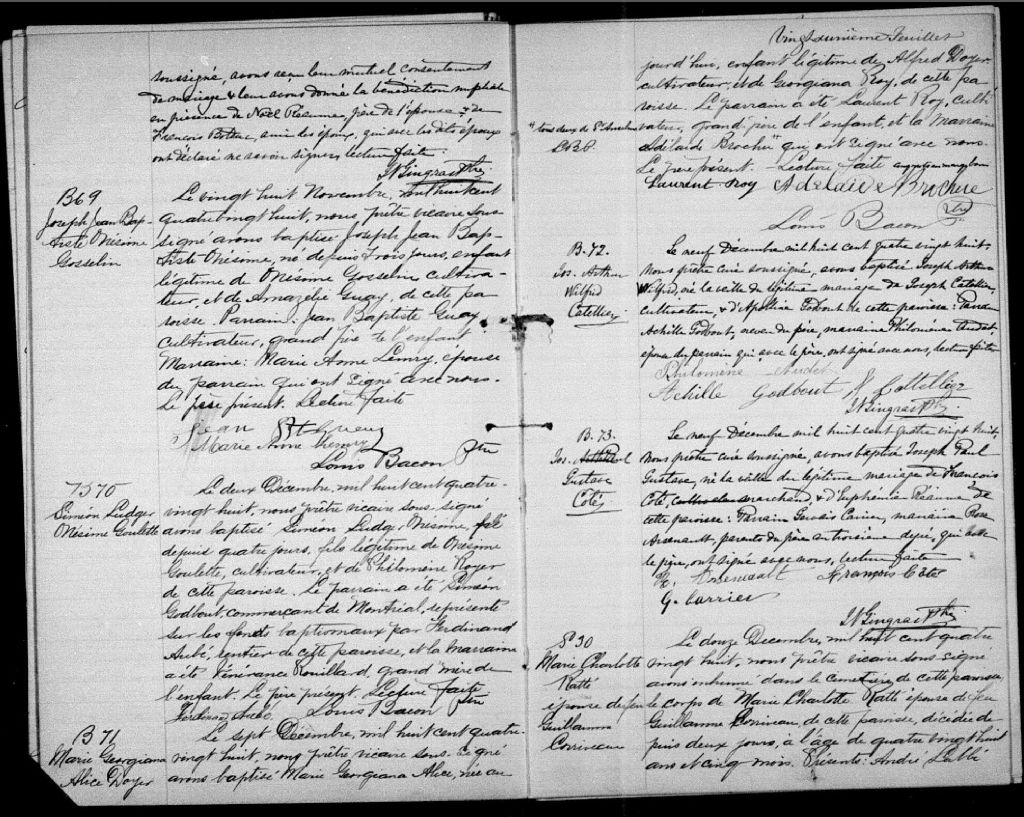 soussigné, avons reçu leur mutuel consentement
de mariage & leur avons donné la bénédiction nuptiale
en présence de Noël Réaume, père de l'épouse, & de
François Bottom, ami des époux, qui avec les dits époux
ont déclaré ne savoir signer, lecture faite.
N Gingras Ptre
B69
Joseph Jean Bap-
tiste Onésime
Gosselin
Le vingt huit Novembre, mil huit cent
quatre vingt huit, nous, prêtre vicaire sous-
signé avons baptisé Joseph Jean Bap-
tiste Onésime, né depuis trois jours, enfant
légitime de Onésime Gosselin cultiva-
teur, et de Amazélie Guay, de cette pa
roisse. Parrain: Jean Baptiste Guay,
cultivateur, grand père de l'enfant
Marraine: Marie Anne Lemry, épouse
du parrain qui ont signé avec nous.
Le père présent. Lecture faite
Jean
Marie Anne
Louis Bacon Ptre
B70
Siméon Ludger
Onésime Goulette
Le deux Décembre, mil huit cent quatre-
vingt huit, nous, prêtre vicaire sous-signé
avons baptisé Siméon Ludger Onésime, né
depuis quatre jours, fils légitime de Onésime
Goulette, cultivateur, et de Philomène Royer
de cette paroisse. Le parrain a été Siméon
Godbout, commerçant de Montréal, représenté
sur les fonts baptismaux par Ferdinand
Aubé, rentier de cette paroisse, et la marraine
a été Vénérance Rouillard, grand'mère de
l'enfant. Le père présent. Lecture faite
Ferdinand Aubé Louis Bacon Ptre
B 71
Marie Georgiana
Alice Doyer
Le sept Décembre, mil huit cent quatre-
vingt huit, nous, prêtre vicaire sous-signé
avons baptisé Marie Georgiana Alice, née au
Vingt unième Feuillet
jourd'hui, enfant légitime de Alfred Doyer
cultivateur, et de Georgiana Roy, de cette pa
roisse. Le parrain a été Laurent Roy, culti
"tous deux de St Anselme
L.B.B.
vateur, grand-père de l'enfant, et la Marraine
Adélaïde Brochu" qui ont signé avec nous.
Le père présent. Lecture faite
Laurent Roy Adelaide Brochue
Louis Bacon Ptre
B.72.
Jos. Arthur
Wilfrid
Catellier
Le neuf Décembre mil huit cent quatre vingt huit,
Nous prêtre curé soussigné, avons baptisé Joseph Arthur
Wilfrid, né la veille du légitime mariage de Joseph Catellier,
cultivateur, & d'Apolline Godbout de cette paroisse: Parrain
Achille Godbout, neveu du père, marraine Philomène Audet
épouse du parrain qui avec le père, ont signé avec nous, lecture faite
Philomène Audet
Achille Godbout J Cattellier
N Gingras Ptre.
B.73.
Jos. Paul
Gustave
Côté
Le neuf Décembre mil huit cent quatre vingt huit,
Nous prêtre curé soussigné, avons baptisé Joseph Paul
Gustave, né la veille du légitime mariage de François
Côté, marchand, & d'Euphémie Réaume, de
cette paroisse: Parrain Gervais Carrier, marraine Rose
Arsenault, parents du père au troisième degré, qui avec
le père, ont signé avec nous, lecture faite
R. Arsenault François Côté
G. Carrier
N Gingras Ptre
S 30
Marie Charlotte
Ratté
épouse de feu
Guillaume
Corriveau
Le douze Décembre, mil huit cent quatre
vingt huit, nous prêtre vicaire sous-signé
avons inhumé dans le cimetière de cette paroisse,
le corps de Marie Charlotte Ratté épouse de feu
Guillaume Corriveau, de cette paroisse, décédée de
puis deux jours, à l'âge de quatre vingt huit
ans et cinq mois. Présents: André Labbé